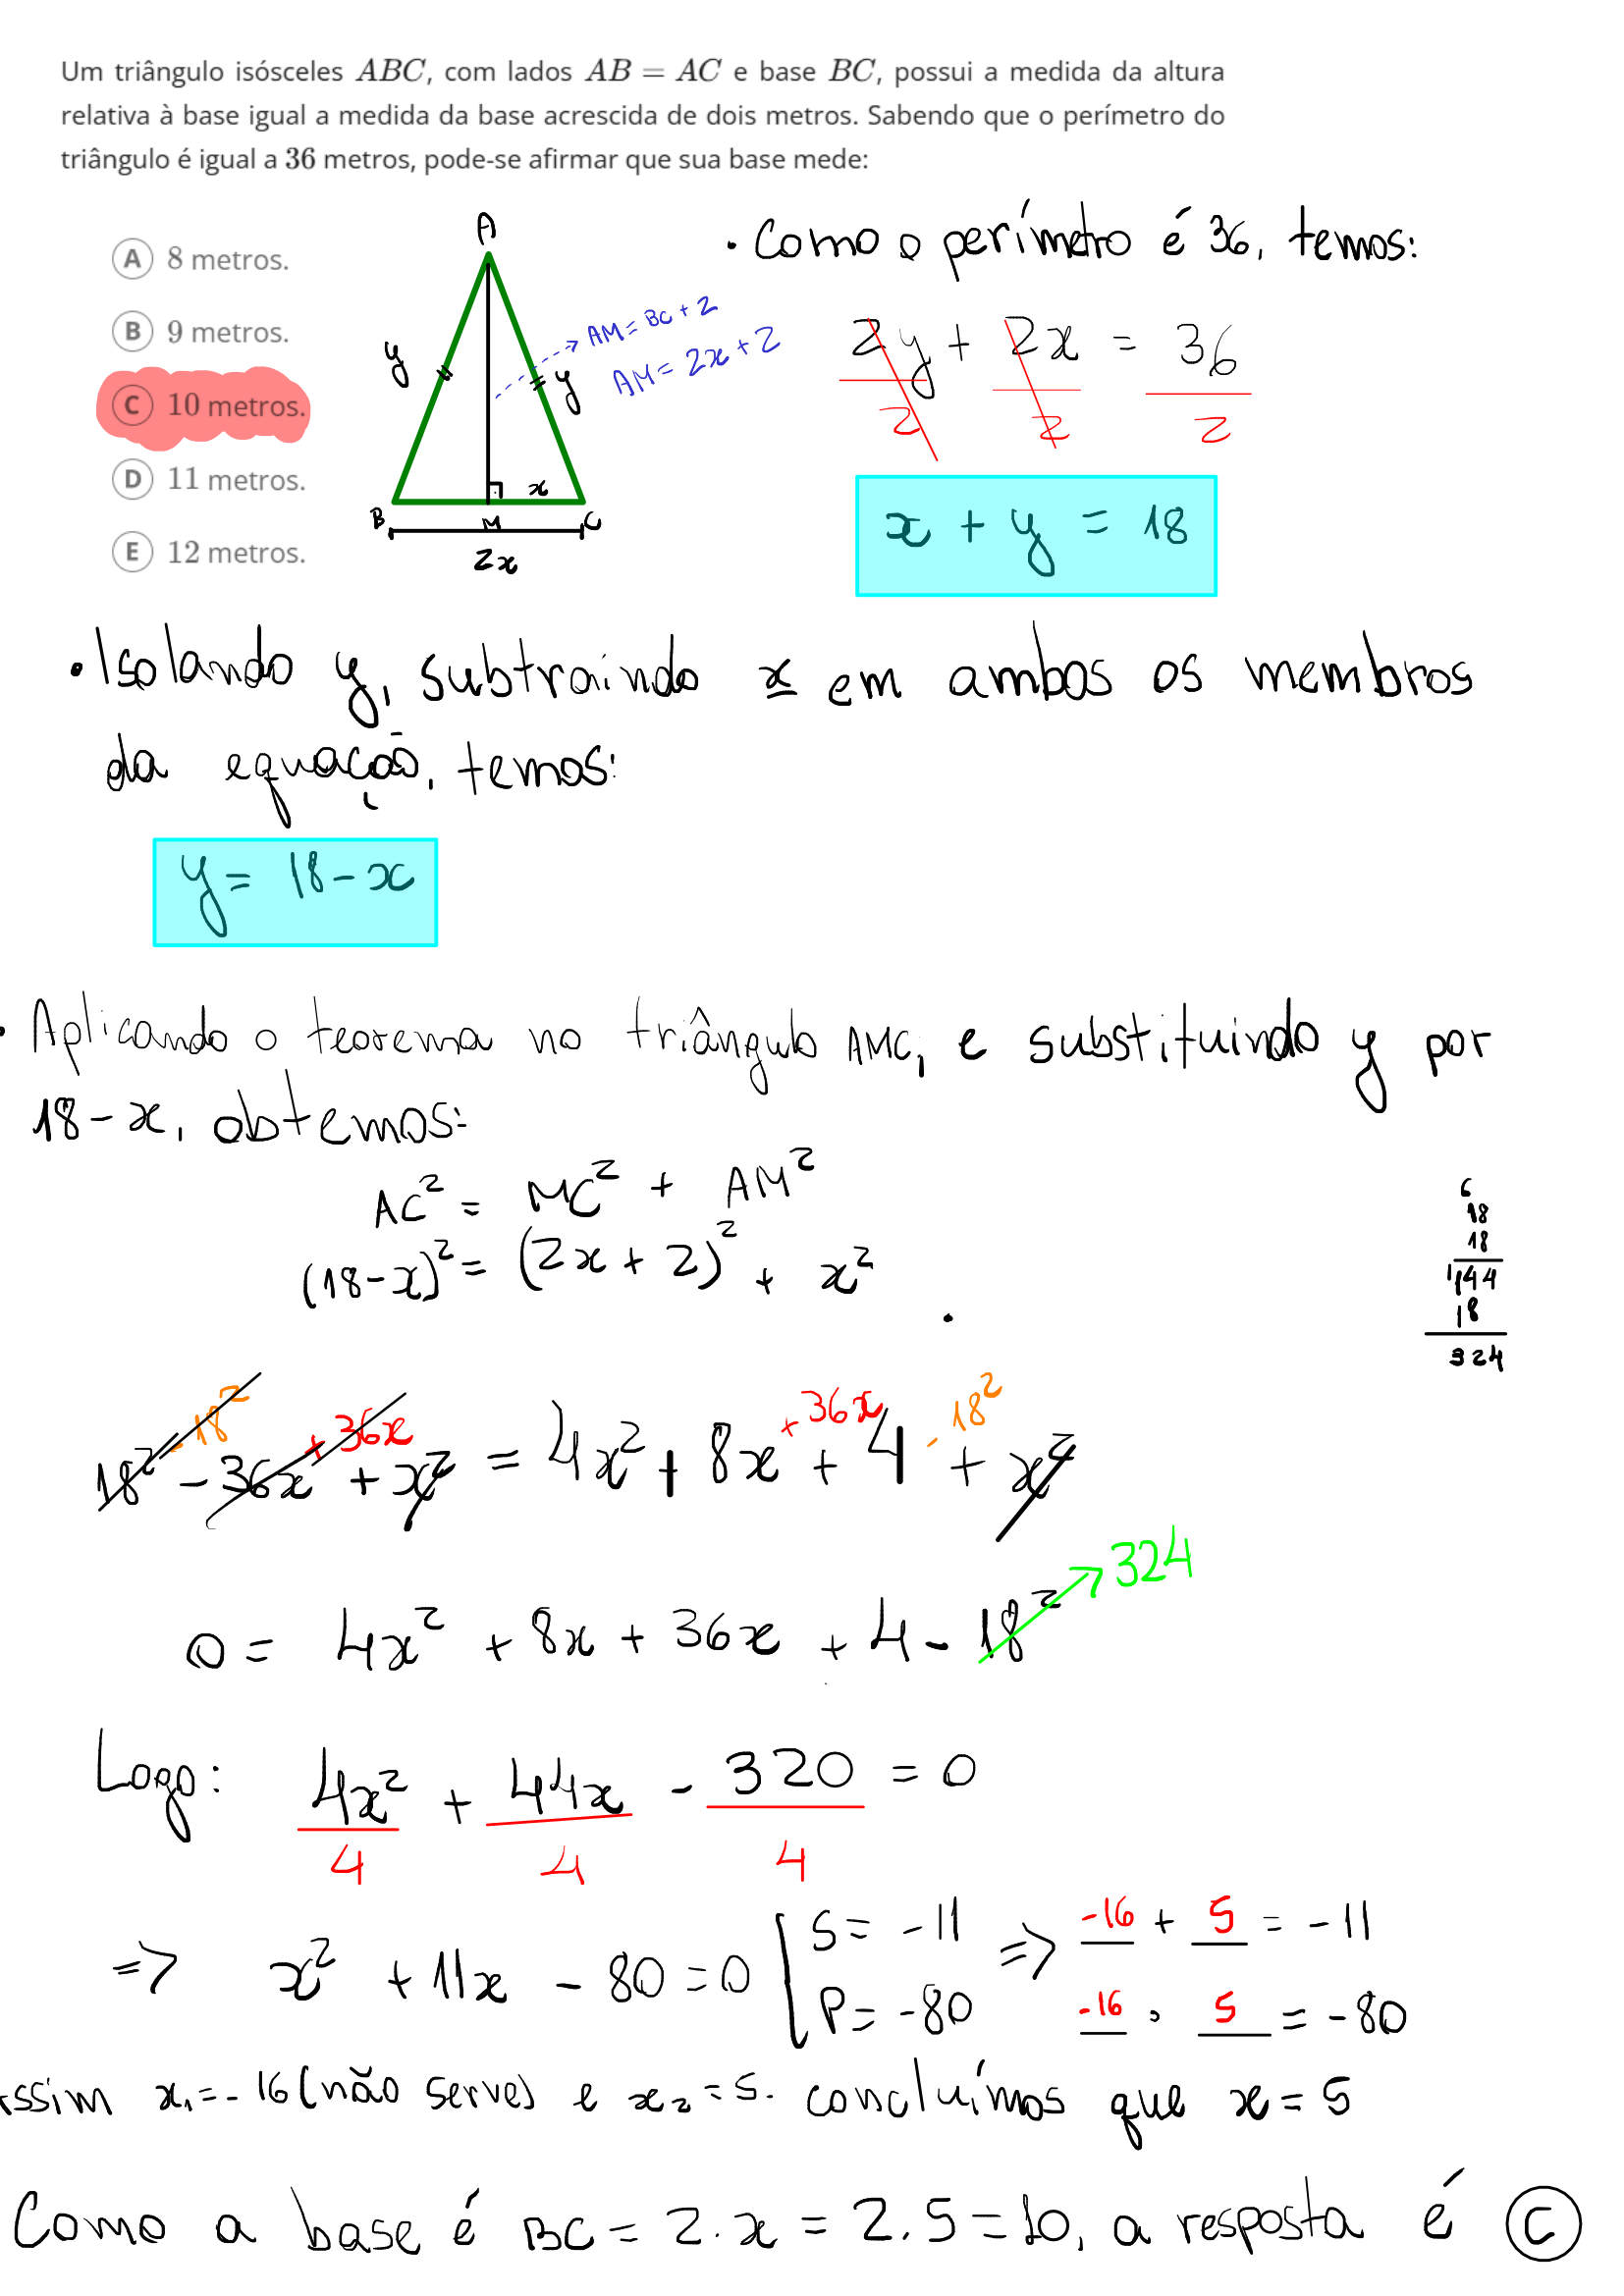 Um triângulo isósceles ABC, com lados AB = AC e base BC, possui a medida da altura
relativa à base igual a medida da base acrescida de dois metros. Sabendo que o perímetro do
triângulo é igual a 36 metros, pode-se afirmar que sua base mede:
A 8 metros.
B 9 metros.
C 10 metros.
D 11 metros.
E 12 metros.
A
y
y
x
B
M
C
2x
AM = BC + 2
AM = 2x + 2
• Como o perímetro é 36, temos:
2y/2 + 2x/2 = 36/2
x + y = 18
• Isolando y, subtraindo x em ambos os membros
da equação, temos:
y = 18 - x
• Aplicando o teorema no triângulo AMC, e substituindo y por
18 - x, obtemos:
AC² = MC² + AM²
(18-x)² = (2x + 2)² + x²
6
18
18
1144
18
324
18² - 18² - 36x + 36x + x² = 4x² + 8x + 36x + 4 - 18² + x²
0 = 4x² + 8x + 36x + 4 - 18² 324
Logo: 4x²/4 + 44x/4 - 320/4 = 0
=> x² + 11x - 80 = 0 { S = -11 => -16 + 5 = -11
P = -80 -16 . 5 = -80
ssim x₁ = -16 (não serve) e x₂ = 5. concluímos que x = 5
Como a base é BC = 2.x = 2.5 = 10, a resposta é C